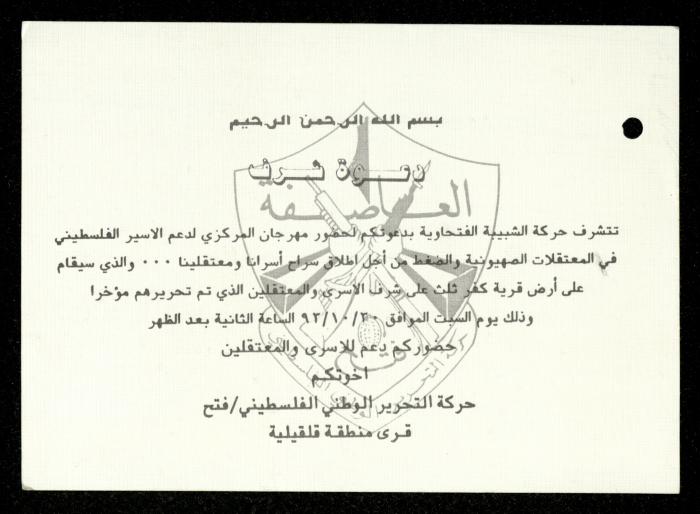 بسم الله الرحمن الرحيم
دعوة شرف
العاصفة
تتشرف حركة الشبيبة الفتحاوية بدعوتكم لحضور مهرجان المركزي لدعم الاسير الفلسطيني
في المعتقلات الصهيونية والضغط من أجل اطلاق سراح أسرانا ومعتقلينا ٠٠٠ والذي سيقام
على أرض قرية كفر ثلث على شرف الاسرى والمعتقلين الذي تم تحريرهم مؤخرا
وذلك يوم السبت الموافق ٩٣/١٠/٣٠ الساعة الثانية بعد الظهر
حضوركم دعم للاسرى والمعتقلين
اخوتكم
حركة التحرير الوطني الفلسطيني/فتح
قرى منطقة قلقيلية
فتح
حركة التحرير الوطني الفلسطيني